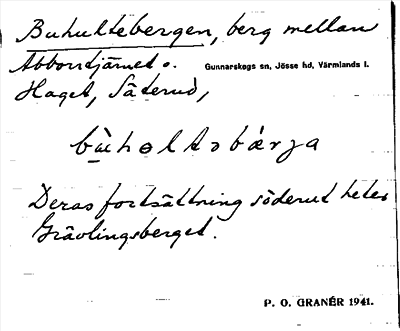 Buhultebergen, berg mellan
Abborrtjärnet o. Gunnarskogs sn, Jösse hd, Värmlands l.
Haget, Säterud,
bùholtəbærja
Deras fortsättning söderut heter
Grävlingsberget.
P. O. GRANÉR 1941.